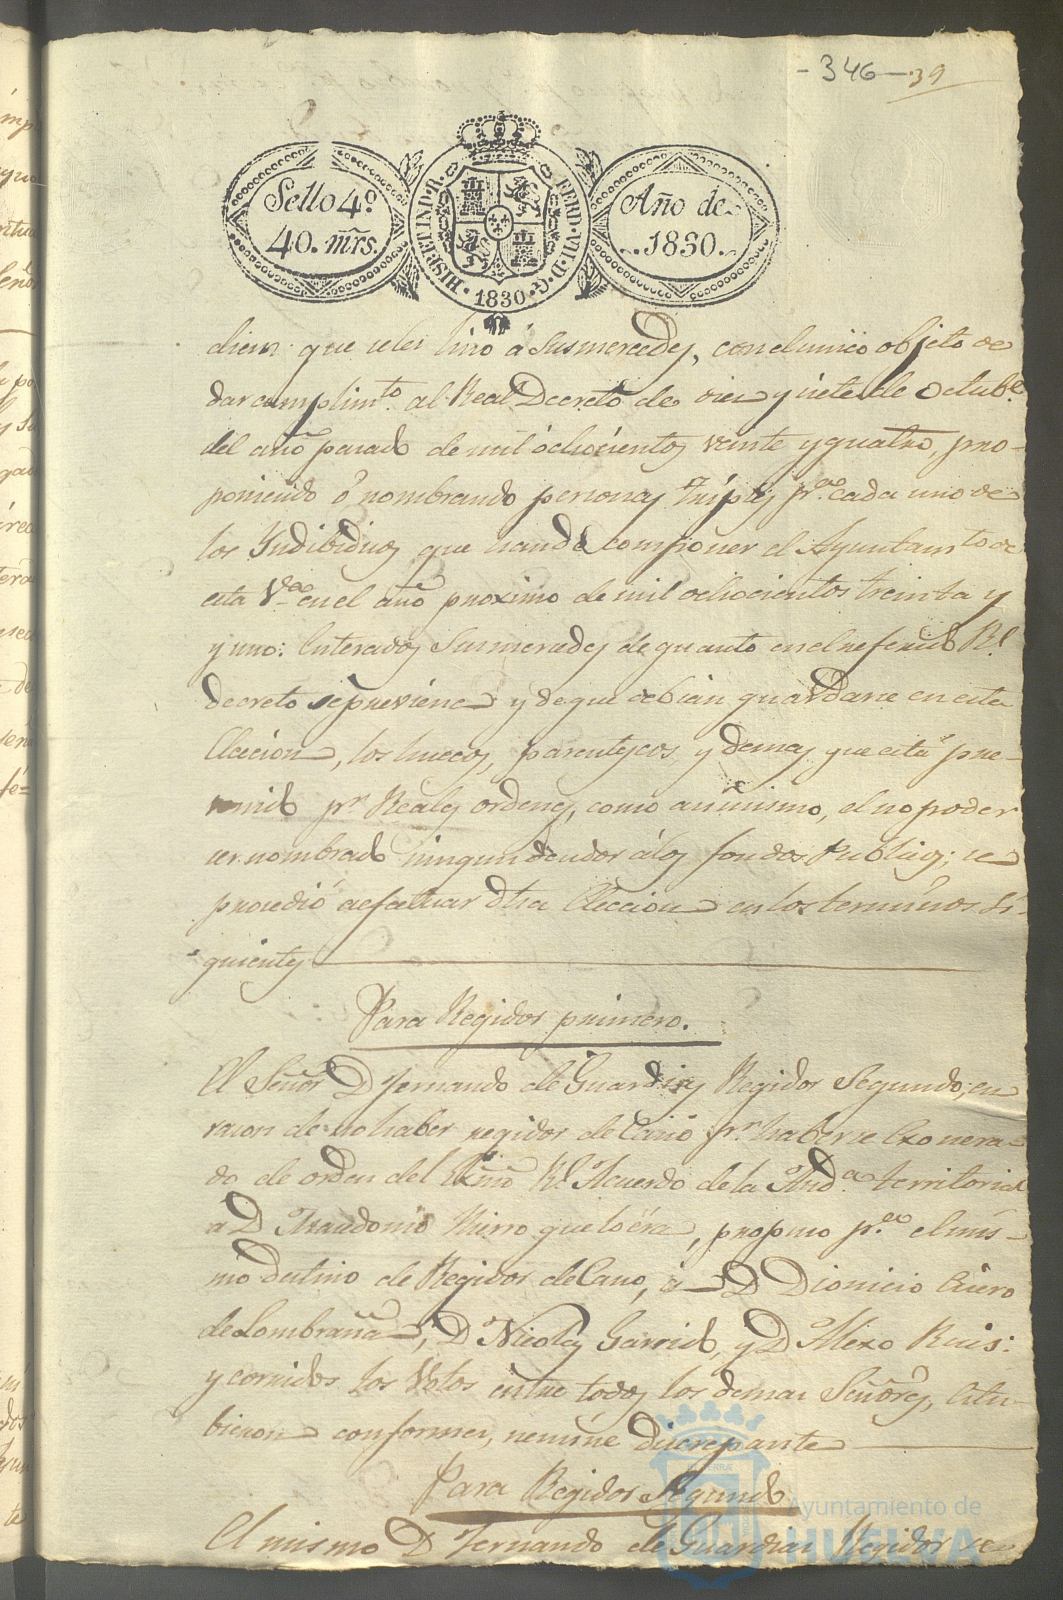 - 346 - 39
Sello 4.º
40. mrs.
HISP. ET IND. R. FERD. VII. D. G. 1830.
Año de
1830.
diem que se les hizo á Susmercedes, con el unico objeto de
dar cumplim.to al Real Decreto de diez y siete de Octub.e
del año pasado de mil ochocientos veinte y quatro, pro-
poniendo ó nombrando personas triples p.a cada uno de
los Yndibiduos que han de componer el Ayuntam.to de
esta V.a en el año proximo de mil ochocientos treinta y
y uno: Enterados Susmercedes de quanto en el referido R.l
decreto se previene y de que debian guardarse en esta
Eleccion, los huecos, parentescos y demas que está pre-
venido p.r Reales ordenes, como asimismo, el no poder
ser nombrado ningun deudor á los fondos Publicos; se
procedió a efectuar dha Eleccion en los terminos si-
guientes
Para Regidor primero.
El Señor D Fernando de Guardias Regidor Segundo, en
razon de no haber regidor de Cano p.r haberse exonera-
do de orden del Exmo R.l Acuerdo de la Aud.a territorial
a D Traudonio Rizo que lo éra, propuso p.a el mis-
mo destino de Regidor de Cano, a D Dionicio Quero
de Lombraña, D Nicolas Garrido, y D Alexo Ruis:
y corridos los Votos entre todos los demas Señores, estu-
bieron conformes, nemine discrepante
Para Regidor Segundo
El mismo D Fernando de Guardias Regidor se
Ayuntamiento de
HUELVA